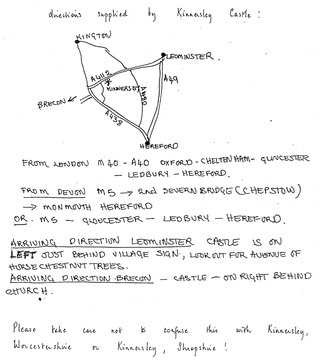 directions supplied by Kinnersley Castle :
KINGTON
LEOMINSTER.
A4112
KINNERSLEY
A480
A49
BRECON
A438
HEREFORD
FROM LONDON M40 - A40 OXFORD - CHELTENHAM - GLOUCESTER
- LEDBURY - HEREFORD.
FROM DEVON M5 → 2nd SEVERN BRIDGE (CHEPSTOW)
→ MONMOUTH HEREFORD
OR. M5 - GLOUCESTER - LEDBURY - HEREFORD.
ARRIVING DIRECTION LEOMINSTER CASTLE IS ON
LEFT JUST BEHIND VILLAGE SIGN, LOOK OUT FOR AVENUE OF
HORSE CHESTNUT TREES.
ARRIVING DIRECTION BRECON - CASTLE - ON RIGHT BEHIND
CHURCH.
Please take care not to confuse this with Kinnersley,
Worcestershire or Kinnersley, Shropshire !